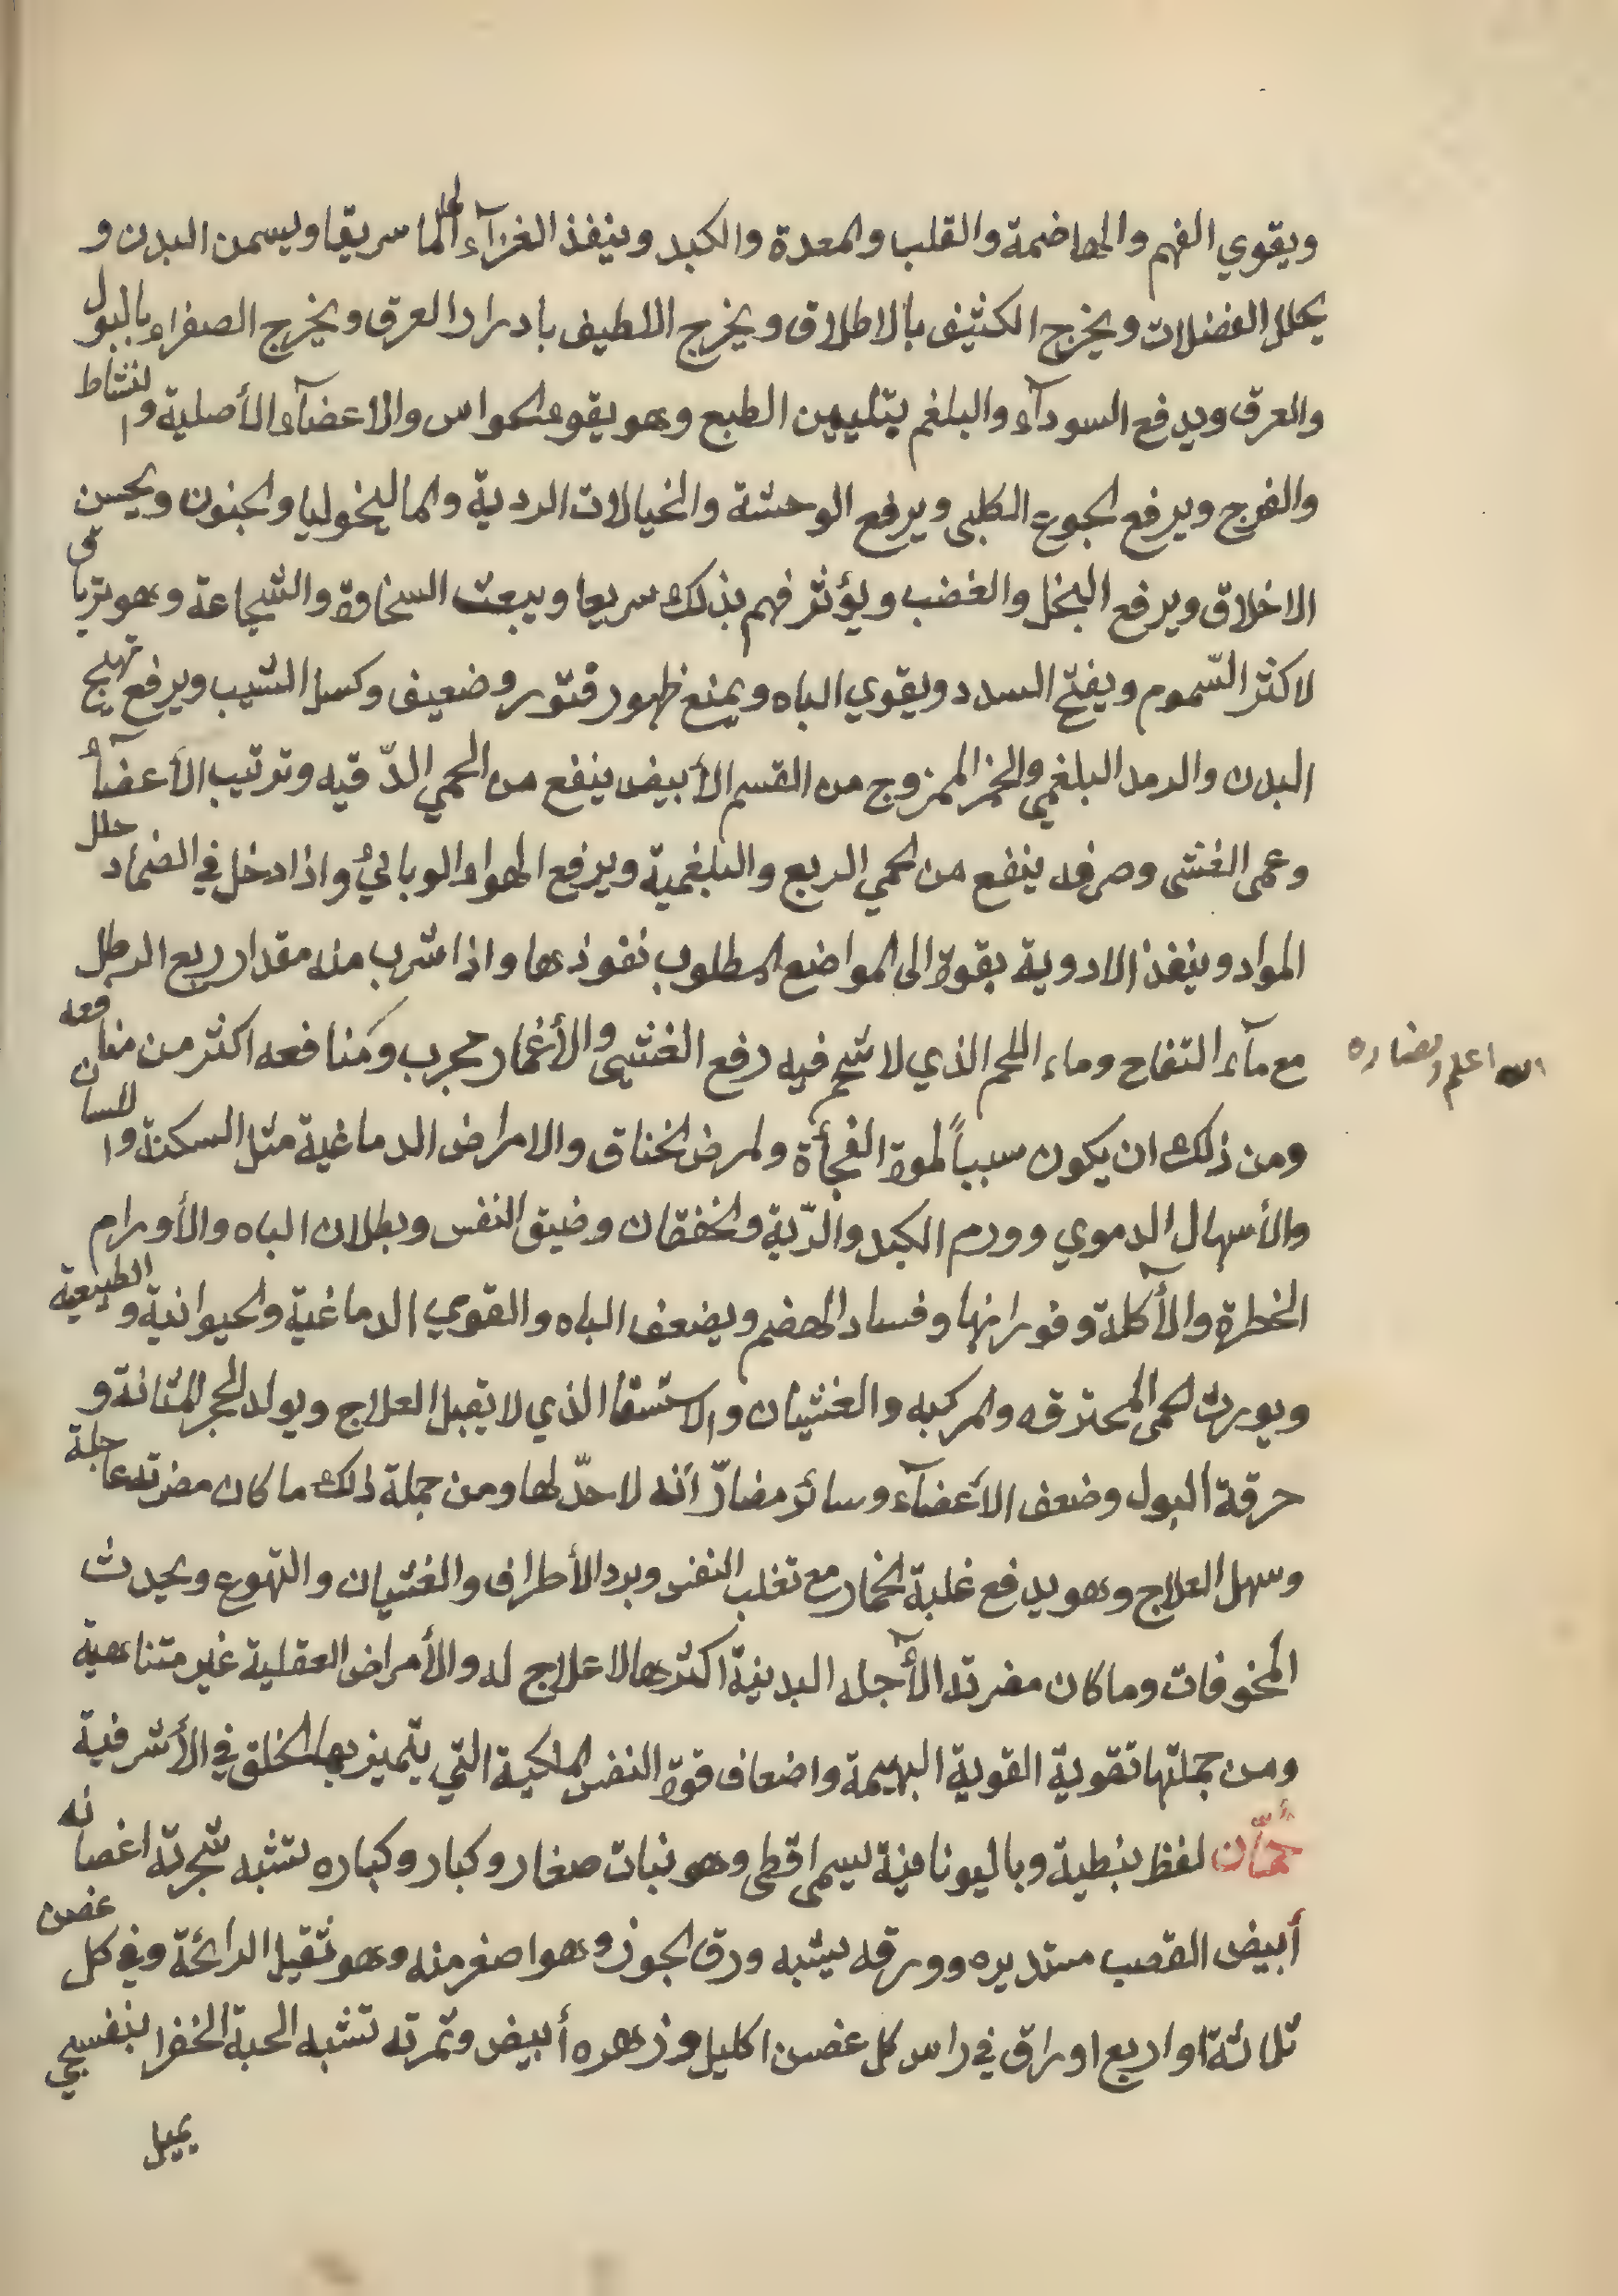 ويقوي الفهم والهاضمة والقلب والمعدة والكبد وينفذ الغزآء الى الماسريقا ويسمن البدن و
يحلل الفضلات ويخرج الكثيف بالاطلاق ويخرج اللطيف بادرار العرق ويخرج الصفراء بالبول
والعرق ويدفع السودآء والبلغم بتليين الطبع وهو يقوى الحواس والاعضآء الأصلية والنشاط
والفرح ويرفع الجوع الكلبى ويرفع الوحشة والخيالات الردية والماليخوليا والجنون ويحسن
الاخلاق ويرفع البخل والغضب ويؤثر فهم بذلك سريعا ويبعث السخاوة والشجاعة وهو ترياق
لاكثر السّموم ويفتح السدد ويقوي الباه ويمنع ظهور فتور وضعيف وكسل الشيب ويرفع تهيج
البدن والرمد البلغمي والخمر الممزوج من القسم الأبيض ينفع من الحمي الدّقيه وترتيب الأعضآء
وعمى الغشى وصرفه ينفع من الحمي الربع والبلغمية ويرفع الهواء الوبائيُ واذا دخل في الضماد حلل
المواد وينفذ الادوية بقوة الى المواضع المطلوب نفوذها واذا شرب منه مقدار ربع الرطل
مع مآء التفاح وماء اللحم الذي لا شحم فيه رفع الغشى والأغمار مجرب ومنافعه اكثر من منافعه
الله اعلم ومضاره
ومن ذلك ان يكون سبباً لموة الفجأة ولمرض الخناق والامراض الدماغية مثل السكتة واللسان
والأسهال الدموي وورم الكبد والرّية والخفقان وضيق النفس وبطلان الباه والأورام
الخطرة والآكلة وفورانها وفساد الهضم ويضعف الباه والقوي الدماغية والحيوانية والطبيعية
ويورث الحمى المحترقه والمركبه والغشيان والاستسقا الذي لا يقبل العلاج ويولد الحجر المثانة و
حرقة البول وضعف الأعضآء وسائر مضارّ أنه لا حدّ لها ومن جملة ذلك ما كان مضرته عاجلة
وسهل العلاج وهو يدفع غلبة الخمار مع تغلب النفس وبرد الأطراف والغثيان والتهوع ويحدث
المخوفات وما كان مضرته الآجله البدنية اكثرها لا علاج له والأمراض العقلية غير متناهية
ومن جملتها تقوية القوية البهيمة واضعاف قوة النفس الملكية التي يتميز بها الخلق في الأشرفية
خُمّان لفظ بنطية وباليونانية يسمى اقطى وهو نبات صغار وكبار وكباره تشبه شجرية اغصانه
أبيض القصب مستديره وورقه يشبه ورق الجوز وهو اصغر منه وهو ثقيل الرائحة وفي كل غصن
ثلاثة او اربع اوراق في راس كل غصن اكليل وزهره أبيض وثمرته تشبه الحبة الخضرا بنفسجي
يميل